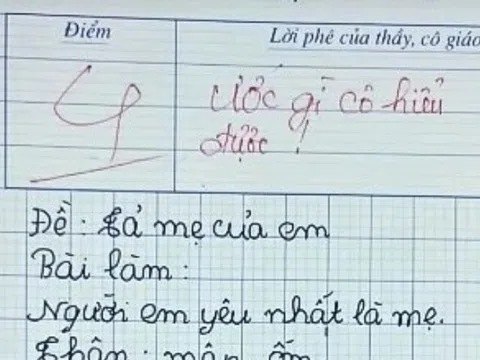 Điểm
Lời phê của thầy, cô giáo
4
Ước gì cô hiểu
được !
Đề : Tả mẹ của em
Bài làm :
Người em yêu nhất là mẹ.